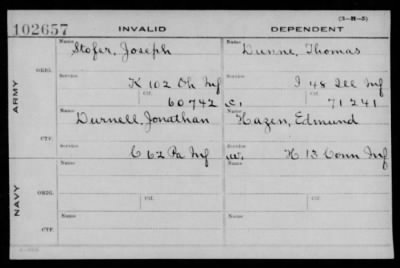 (3-H-5)
102657 INVALID DEPENDENT
Name Stofer, Joseph Name Dunne, Thomas
ORIG. Service K 102 Oh Inf Service I 48 Ill Inf
ARMY Ctf. 60742 Ctf. c. 71241
Name Durnell, Jonathan Name Hazen, Edmund
CTF. Service C 62 Pa Inf Service w. H 13 Conn Inf
Name Name
ORIG. Service Ctf. Service Ctf.
NAVY
Name Name
CTF. Service Service